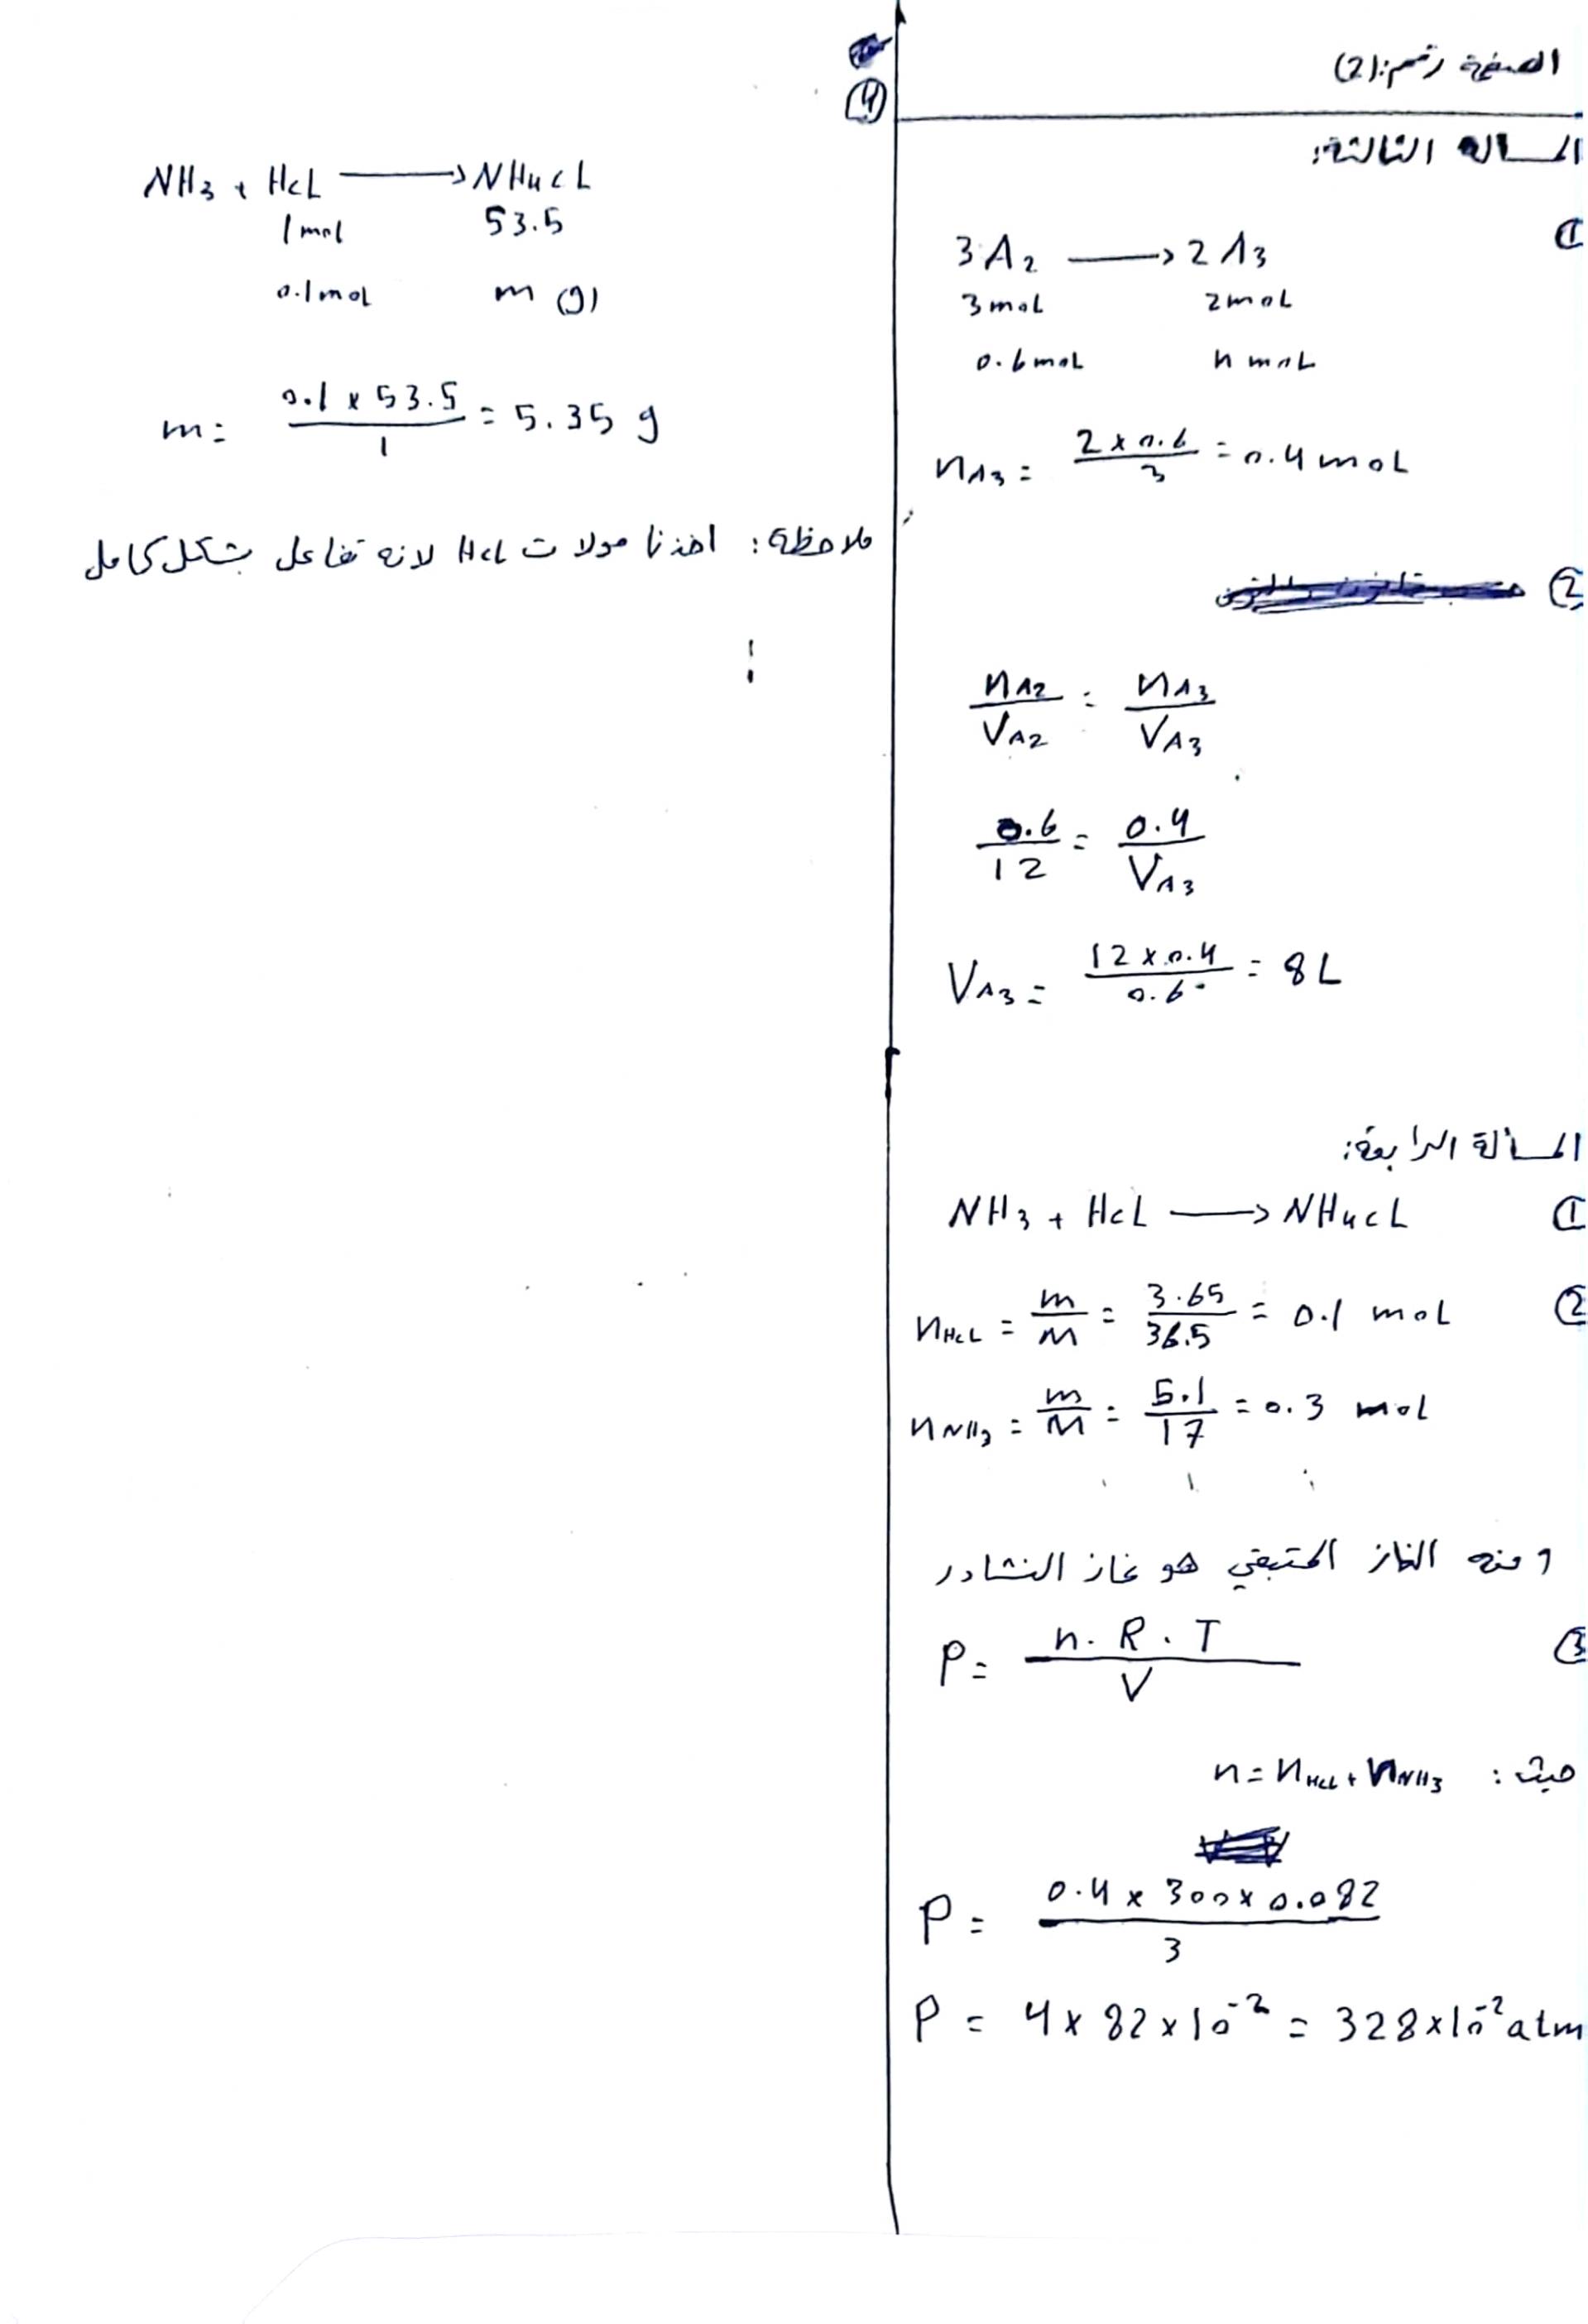 الصفحة رقم: (2)
المسألة الثالثة:
①
3A2 ⟶ 2A3
3mol 2mol
0.6mol n mol
nA3 = (2 × 0.6)/3 = 0.4 mol
②
nA2/VA2 = nA3/VA3
0.6/12 = 0.4/VA3
VA3 = (12 × 0.4)/0.6 = 8L
المسألة الرابعة:
① NH3 + HCL ⟶ NH4CL
② nHCL = m/M = 3.65/36.5 = 0.1 mol
nNH3 = m/M = 5.1/17 = 0.3 mol
ومنه الغاز المتبقي هو غاز النشادر
③ P = n.R.T/V
حيث: n = nHCL + nNH3
P = (0.4 × 300 × 0.082)/3
P = 4 × 82 × 10⁻² = 328 × 10⁻² atm
④
NH3 + HCL ⟶ NH4CL
1mol 53.5
0.1mol m (g)
m = (0.1 × 53.5)/1 = 5.35 g
ملاحظة: اخذنا مولات HCL لانه تفاعل بشكل كامل